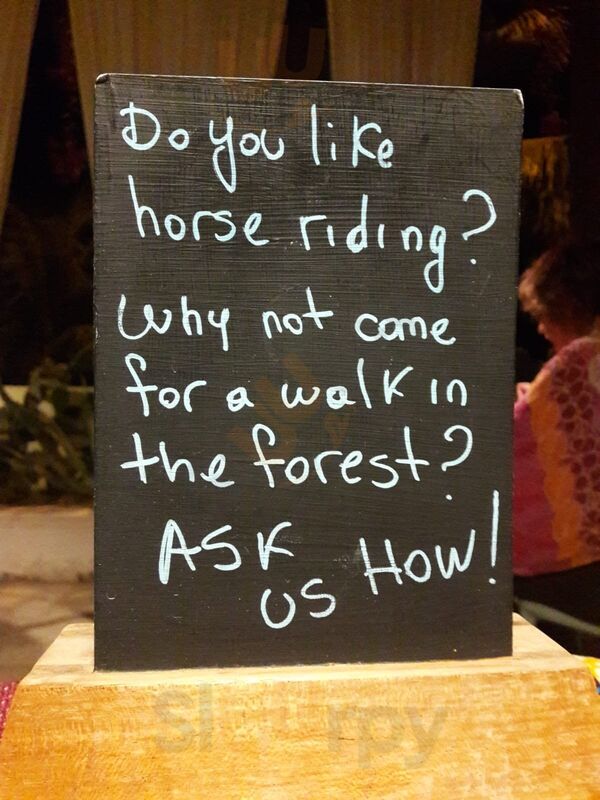 Do you like
horse riding?
Why not come
for a walk in
the forest?
ASK US HOW!